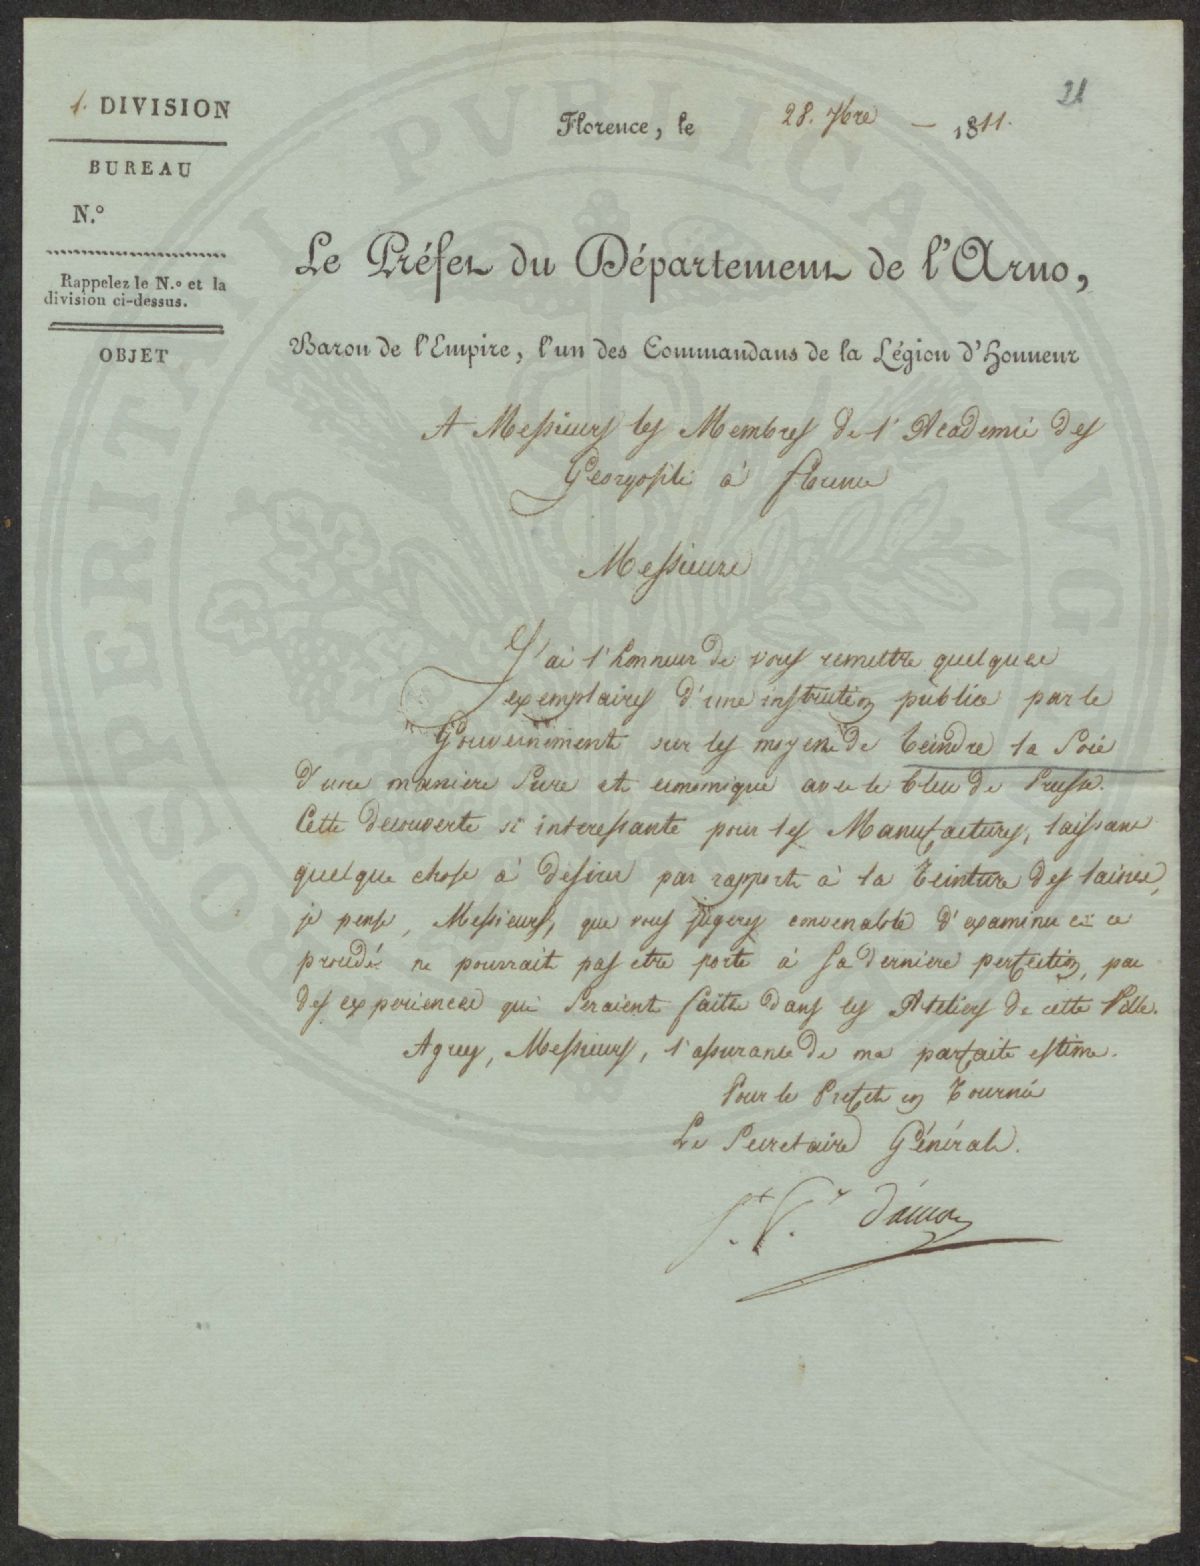 21
1. DIVISION
Florence, le 28. 7bre — 1811.
BUREAU
N.º
Rappelez le N.º et la
division ci-dessus.
OBJET
Le Préfet du Département de l'Arno,
Baron de l'Empire, l'un des Commandans de la Légion d'Honneur
A Messieurs les Membres de l'Academie des
Georgofili à Florence
Messieurs
J'ai l'honneur de vous remettre quelques
exemplaires d'une instruction publiée par le
Gouvernement sur les moyens de teindre la Soie
d'une maniere Sure et economique avec le bleu de Prusse.
Cette decouverte si interessante pour les Manufactures, laissant
quelque chose à desirer par rapport à la teinture des laines,
je pense, Messieurs, que vous jugerez convenable d'examiner si ce
procédé ne pourrait pas etre porté à sa derniere perfection, par
des experiences qui seraient faites dans les Ateliers de cette Ville.
Agréez, Messieurs, l'assurance de ma parfaite estime.
Pour le Prefet en Tournée
Le Secretaire Général.
PROSPERITATI PVBLICAE AVGENDAE